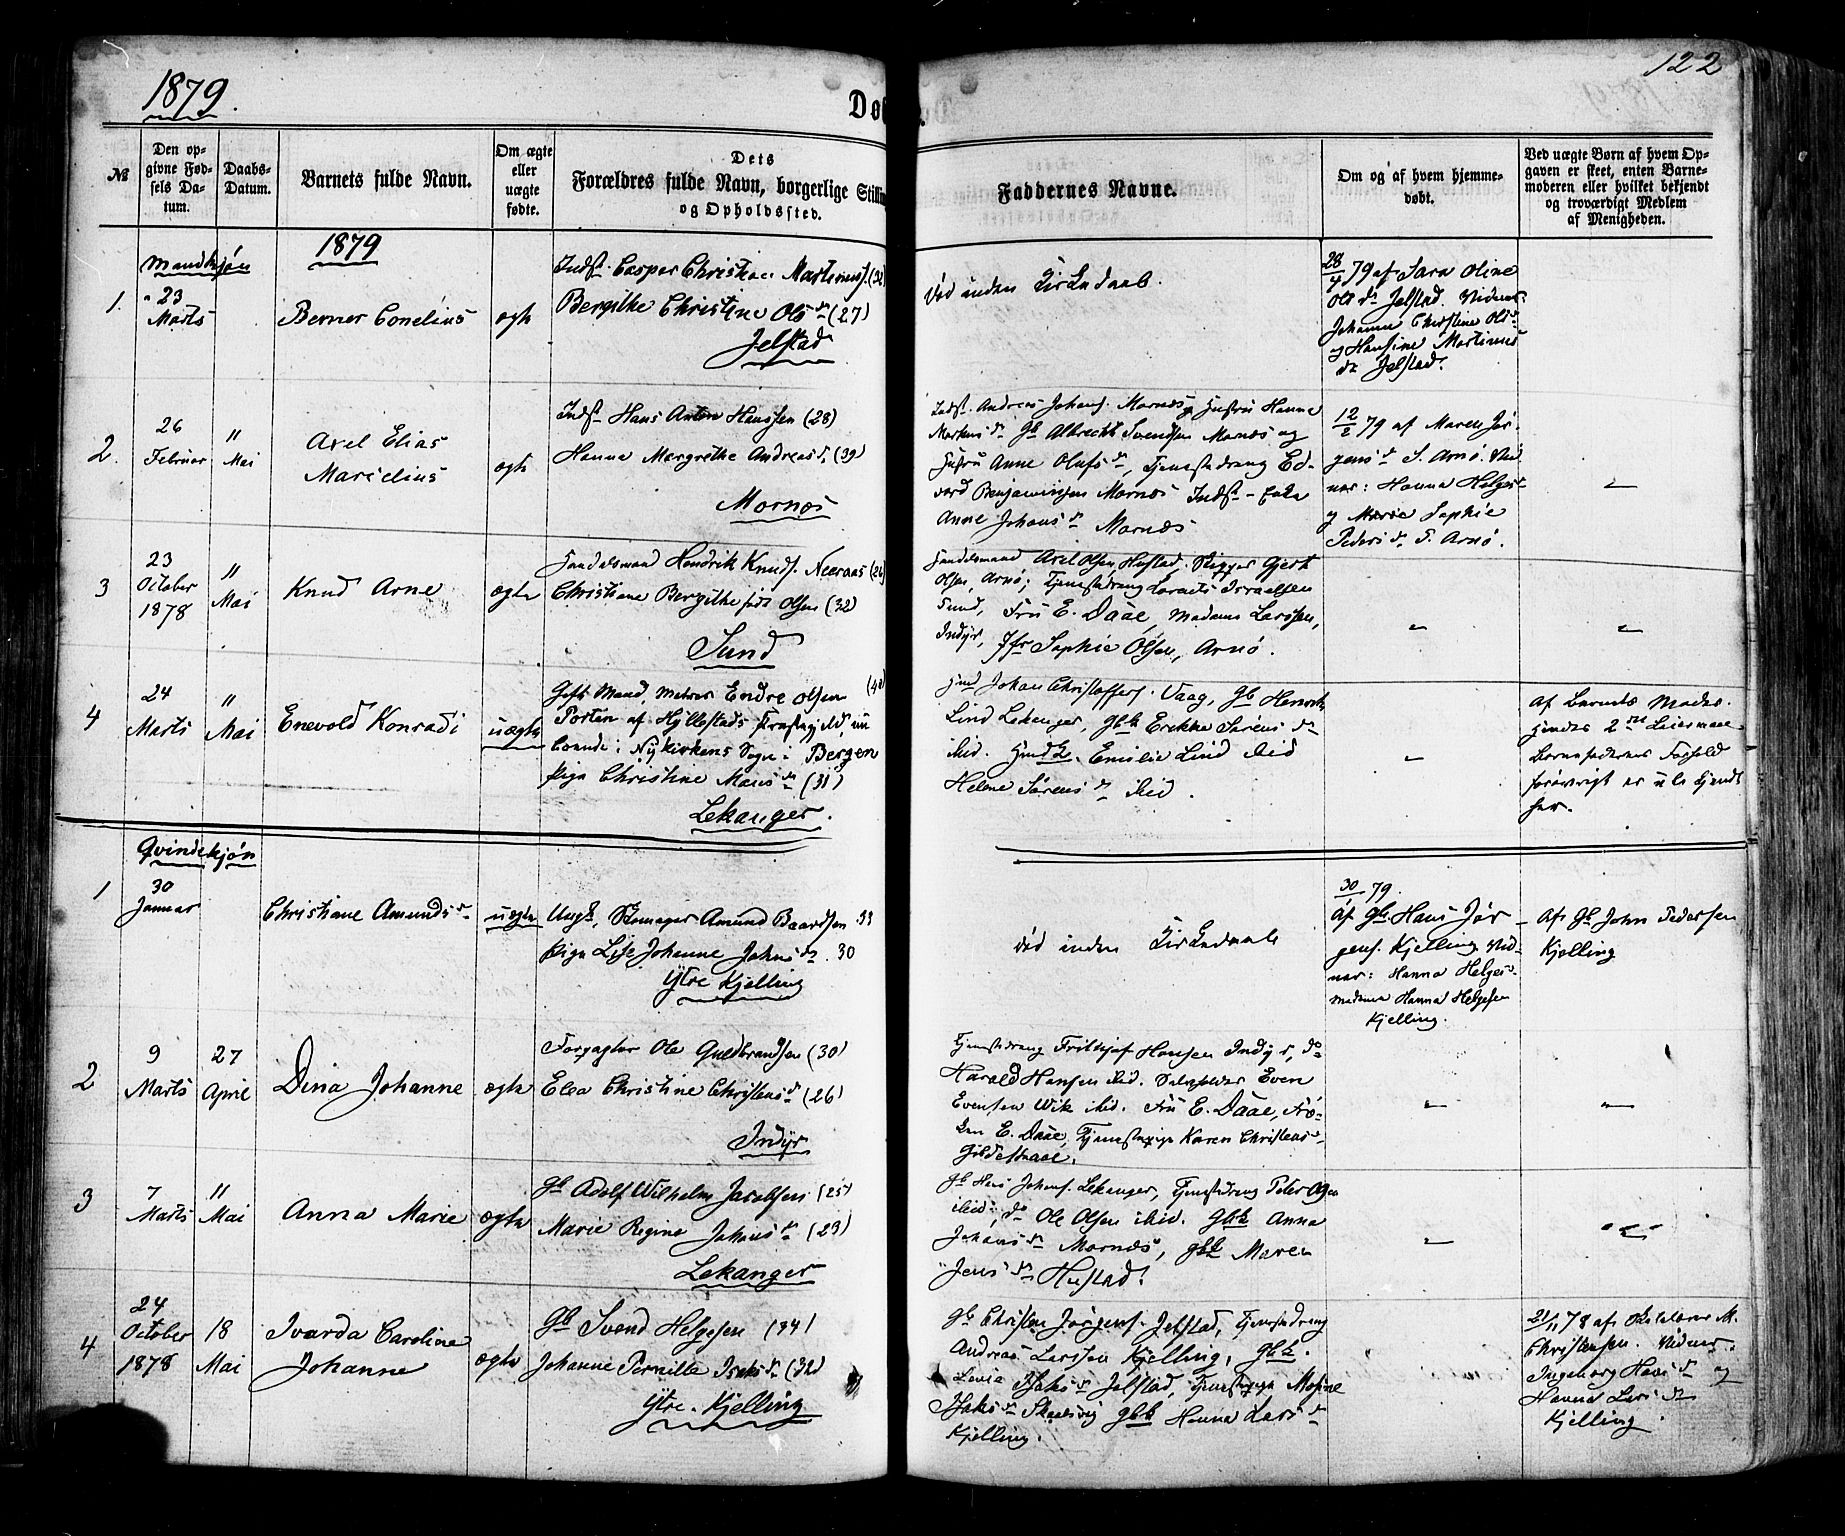 1879.
122
Dø
№
Den op-
givne Fød-
sels Da-
tum.
Daabs-
Datum.
Barnets fulde Navn.
Om ægte
eller
uægte
fødte.
Dets
Forældres fulde Navn, borgerlige Stillin
og Opholdssted.
Faddernes Navne.
Om og af hvem hjemme-
døbt.
Ved uægte Børn af hvem Op-
gaven er skeet, enten Barne-
moderen eller hvilket bekjendt
og troværdigt Medlem
af Menigheden.
Mandkjøn
1879
1.
23
Marts
Berner Conelius
ægte
Indst. Casper Christian Martinus.
Bergithe Christine Ols dr (27)
Jelstad
Død inden Kirkedaab.
28/4 79 af Sara Oline
Ols dr Jelstad. Vidner
Johanna Christine Ols dr
og Hansine Martinus
dr Jelstad.
2.
26
Februar
"
Mai
Axel Elias
Marselius
ægte
Indst Hans Anton Hanssen (28)
Hanna Margrethe Andreas d. (39)
Mornæs
Indst. Andreas Johans. Mornæs, Hustru Hanna
Markus dr Gb Albrecht Svendsen Mornæs og
Hustru Anne Olufs dr, Tjenestedreng Ed-
vard Benjaminsen Mornæs Indst - Enke
Anne Johans dr Mornæs
12/2 79 af Maren Jør-
gens dr S. Arnø. Vid-
ner: Hanna Helges
og Marie Sophie
Peders dr S. Arnø.
"
3
23
October
1878
"
Mai
Knud Arne
ægte
Handelsmand Hendrik Knuds. Neeraas (26)
Christiane Bergithe født Olsen (32)
Sund
Handelsmand Axel Olsen Hustad, Skipper Gjert
Olsen, Arnø; Tjenestedreng Lorents Israelsen
Sund, Fru E. Daae, Madame Larssen,
Indyr, Jfr Sophie Olsen, Arnø.
"
"
4
24
Marts
"
Mai
Enevold Konradi
uægte
Gift Mand, Endre Olsen (40)
Porten af Hyllestads Præstegjeld, nu
boende i Nykirkens Sogn i Bergen
Pige Christine Mons dr (31)
Lekanger.
Gmd Johan Christoffers. Vaag, Gb Henrik
Lind Lekanger, Gbk Erikka Sørens dr
ibid. Gmdk. Emilie Lind ibid
Helene Sørens dr ibid.
"
Af Barnets Moder.
Hendes 2det Leiermaal
Barnefaderens Forhold
forøvrigt er ube kjendt
her.
Qvindekjøn
1
30
Januar
Christiane Amunds dr
uægte
Ungk. Skomager Amund Baardsen 33
Pige Lise Johanne Johns dr. 30
Ytre Kjelling
Død inden Kirkedaab
30/1 79.
Af Gb. Hans Jør-
gens. Kjelling Vid-
ner: Hanna Helges
Madame Hanna Helgesen
Kjelling.
Af Gb John Pedersen
Kjelling
2
9
Marts
27
April
Dina Johanne
ægte
Forpagter Ole Guldbrandsen (30)
Elea Christine Christens d (26)
Indyr
Tjenestedreng Frithjof Hansen Indyr, do
Harald Hansen ibid. Even
Evensen Wik ibid. Fru E. Daae, Frø-
ken E. Daae, Tjenestepige Karen Christens dr
Gildeskaal.
"
"
3
7
Marts
"
Mai
Anna Marie
ægte
Gb Adolf Wilhelm Jacobsen (25)
Marie Regine Johans dr (23)
Lekanger
Gb Hans Johans. Lekanger, Tjenestedreng Peter
ibid, do Ole Olsen ibid. Gbk Anna
Johans dr Mornæs, Gbk Maren
Jens dr Hustad.
"
"
4
24
October
1878
18
Mai
Ivarda Caroline
Johanne
ægte
Gb Svend Helgesen (34)
Johanne Pernille Isaks dr (32)
Ytre. Kjelling
Gb Christen Jørgens. Jelstad, Tjenestedreng
Andreas Larssen Kjelling, Gbk.
Lovise Isaks dr Jelstad, Tjenestepige Mosine
Isaks dr Skaalsvig Gbk Hanna Lars dr
Kjelling.
21/11 78 af Skolelærer M.
Christensen. Vidner.
Ingeborg Hans dr og
Hanna Lars dr
Kjelling.